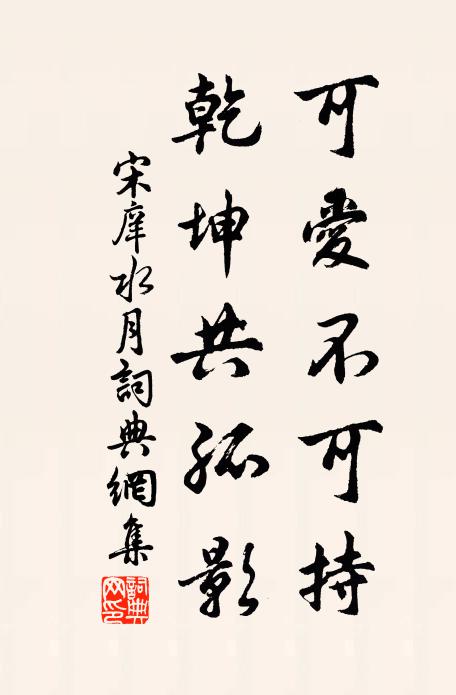 可愛不可持
乾坤共孤影
宋庠水月詞典網集
詞典網印